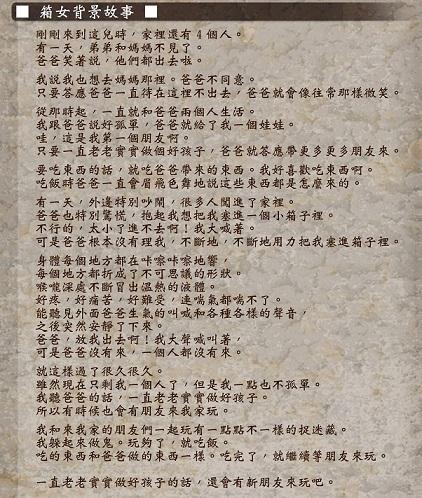 ■ 箱女背景故事 ■
剛剛來到這兒時，家裡還有4個人。
有一天，弟弟和媽媽不見了。
爸爸笑著說，他們都出去啦。
我說我也想去媽媽那裡。爸爸不同意。
只要答應爸爸一直待在這裡不出去，爸爸就會像往常那樣微笑。
從那時起，一直就和爸爸兩個人生活。
我跟爸爸說好孤單，爸爸就給了我一個娃娃。
哇，這是我第一個朋友啊。
只要一直老老實實做個好孩子，爸爸就答應帶更多更多朋友來。
要吃東西的話，就吃爸爸帶來的東西。我好喜歡吃東西啊。
吃飯時爸爸一直會眉飛色舞地說這些東西都是怎麼來的。
有一天，外邊特別吵鬧，很多人闖進了家裡。
爸爸也特別驚慌，抱起我想把我塞進一個小箱子裡。
不行的，太小了進不去啊！我大喊著。
可是爸爸根本沒有理我，不斷地，不斷地用力把我塞進箱子裡。
身體每個地方都在咔嚓咔嚓地響，
每個地方都折成了不可思議的形狀。
喉嚨深處不斷冒出溫熱的液體。
好疼，好痛苦，好難受，連喘氣都喘不了。
能聽見外面爸爸生氣的叫喊和各種各樣的聲音，
之後突然安靜了下來。
爸爸，放我出去啊！我大聲喊叫著，
可是爸爸沒有來，一個人都沒有來。
就這樣過了很久很久。
雖然現在只剩我一個人了，但是我一點也不孤單。
我聽爸爸的話，一直老老實實做好孩子。
所以有時候也會有朋友來我家玩。
我和來我家的朋友們一起玩有一點點不一樣的捉迷藏。
我躲起來做鬼。玩夠了，就吃飯。
吃的東西和爸爸做的東西一樣。吃完了，就繼續等朋友來玩。
一直老老實實做好孩子的話，還會有新朋友來玩吧。